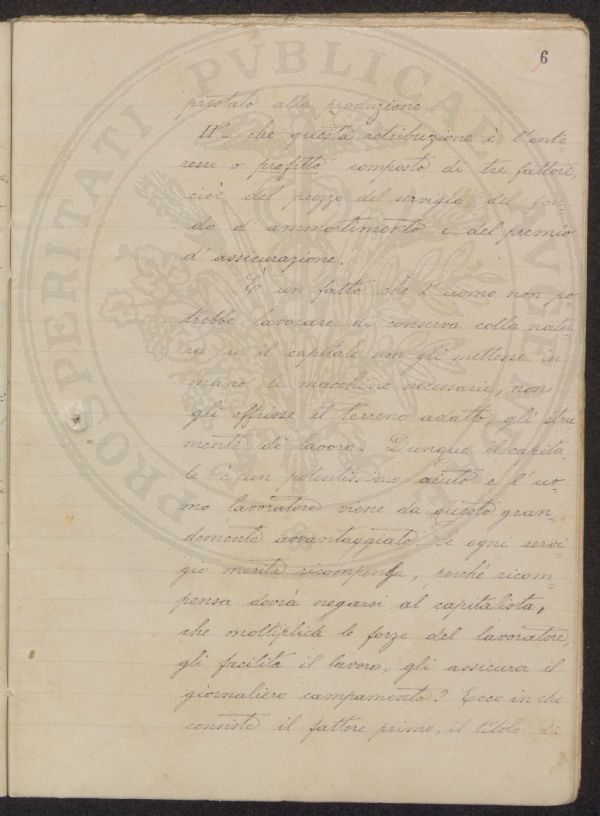 6
prestato alla produzione
II.° che questa retribuzione è l'inte-
resse o profitto composto di tre fattori,
cioè del prezzo del servigio, del fon-
do d'ammortimento e del premio
d'assicurazione.
È un fatto che l'uomo non po-
trebbe lavorare di conserva colla natu-
ra se il capitale non gli mettesse in
mano le macchine necessarie, non
gli offrisse il terreno adatto, gli stru
menti di lavoro. Dunque il capita-
le è un potentissimo aiuto e l'uo-
mo lavoratore viene da questo gran-
demente avvantaggiato. Se ogni servi-
gio merita ricompensa, perchè ricom-
pensa dovrà negarsi al capitalista,
che moltiplica le forze del lavoratore,
gli facilita il lavoro, gli assicura il
giornaliero campamento? Ecco in che
consiste il fattore primo, il titolo di
PROSPERITATI PVBLICAE